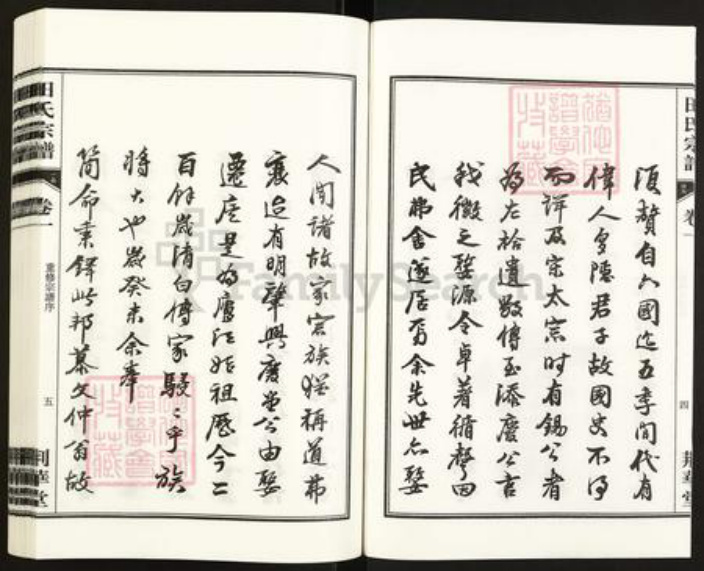 田氏宗譜
卷一
四
荊華堂
須贊自六國迄五季間代有
偉人多隱君子故國史不得
而詳及宋太宗時有錫公者
為左拾遺數傳至添慶公言
我徽之婺源令卓著循聲因
民弗舍遂居焉余先世亦婺
人聞諸故家宗族猶稱道弗
衰迨有明肇興慶堂公由婺
遷 是為 江始祖歷今二
百餘歲清白傳家駸駸乎族
將大也歲癸未余奉
簡命秉鐸此邦慕文仲翁故
田氏宗譜
卷一
重修宗譜序
五
荊華堂
譜學會
特藏
FamilySearch